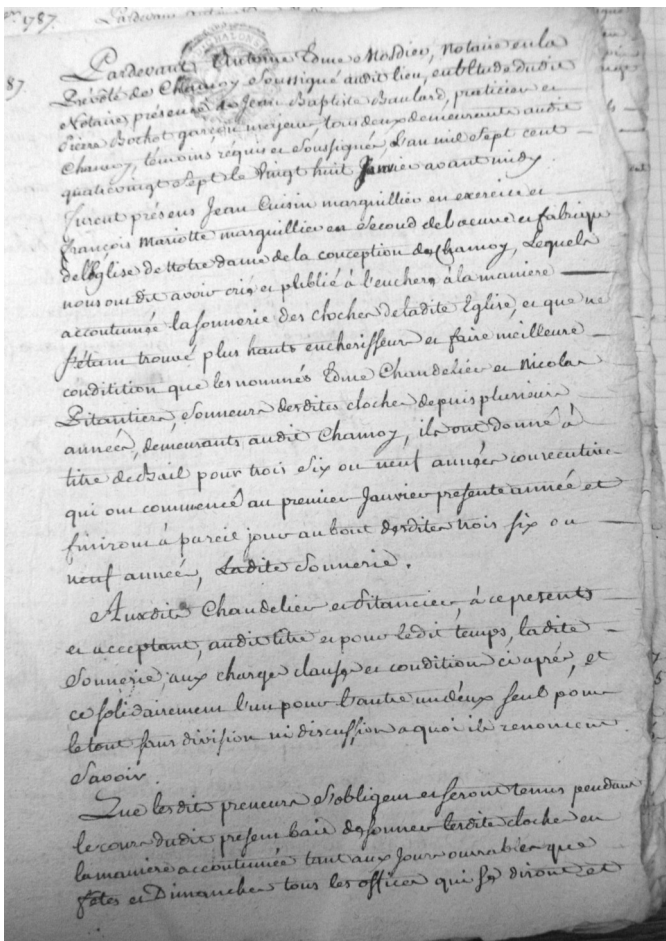 1787.
87.
Pardevant Antoine Edme Mosdier, Notaire en la
Prévôté de Chamoy Soussigné audit lieu, en l'Etude dudit
Notaire présence de Jean Baptiste Baulard, praticien et
Pierre Bochot garçon majeur tous deux demeurants audit
Chamoy, témoins réquis et Soussignés L'an mil Sept cent
quatrevingt Sept le Vingt huit Janvier avant midy
furent présens Jean Cuisin marguillier en exercice et
François Mariotte marguillier en Second de la cure et fabrique
de l'Eglise de Notre dame de la conception de Chamoy, Lequels
nous ont dit avoir crié et plublié à l'enchere à la maniere
accoutumée la sonnerie des cloches de ladite Eglise, et que ne
s'étant trouvé plus hauts encherisseur et faire meilleure
conditition que les nommés Edme Chandelier et Nicolas
Pitantiers, Sonneurs desdites cloches depuis plusieurs
années, demeurants audit Chamoy, ils ont donné à
titre de Bail pour trois Six ou neuf années consecutives
qui ont commencé au premier Janvier presente année et
finiront à pareil jour au bout desdites trois six ou
neuf années, Ladite Sonnerie.
Auxdits Chandelier et Pitancier, à ce presents
et acceptant, audit titre et pour ledit temps, ladite
Sonnerie, aux charges clauses et condition ci après, et
ce solidairement l'un pour l'autre un d'eux seul pour
le tout sans division ni discussion a quoi ils renoncent
Savoir.
Que lesdits preneurs S'obligent et seront tenus pendant
le cours dudit présent bail de sonner lesdites cloches en
la maniere accoutumée tant aux Jours ouvrables que
fêtes et Dimanches tous les offices qui se diront et